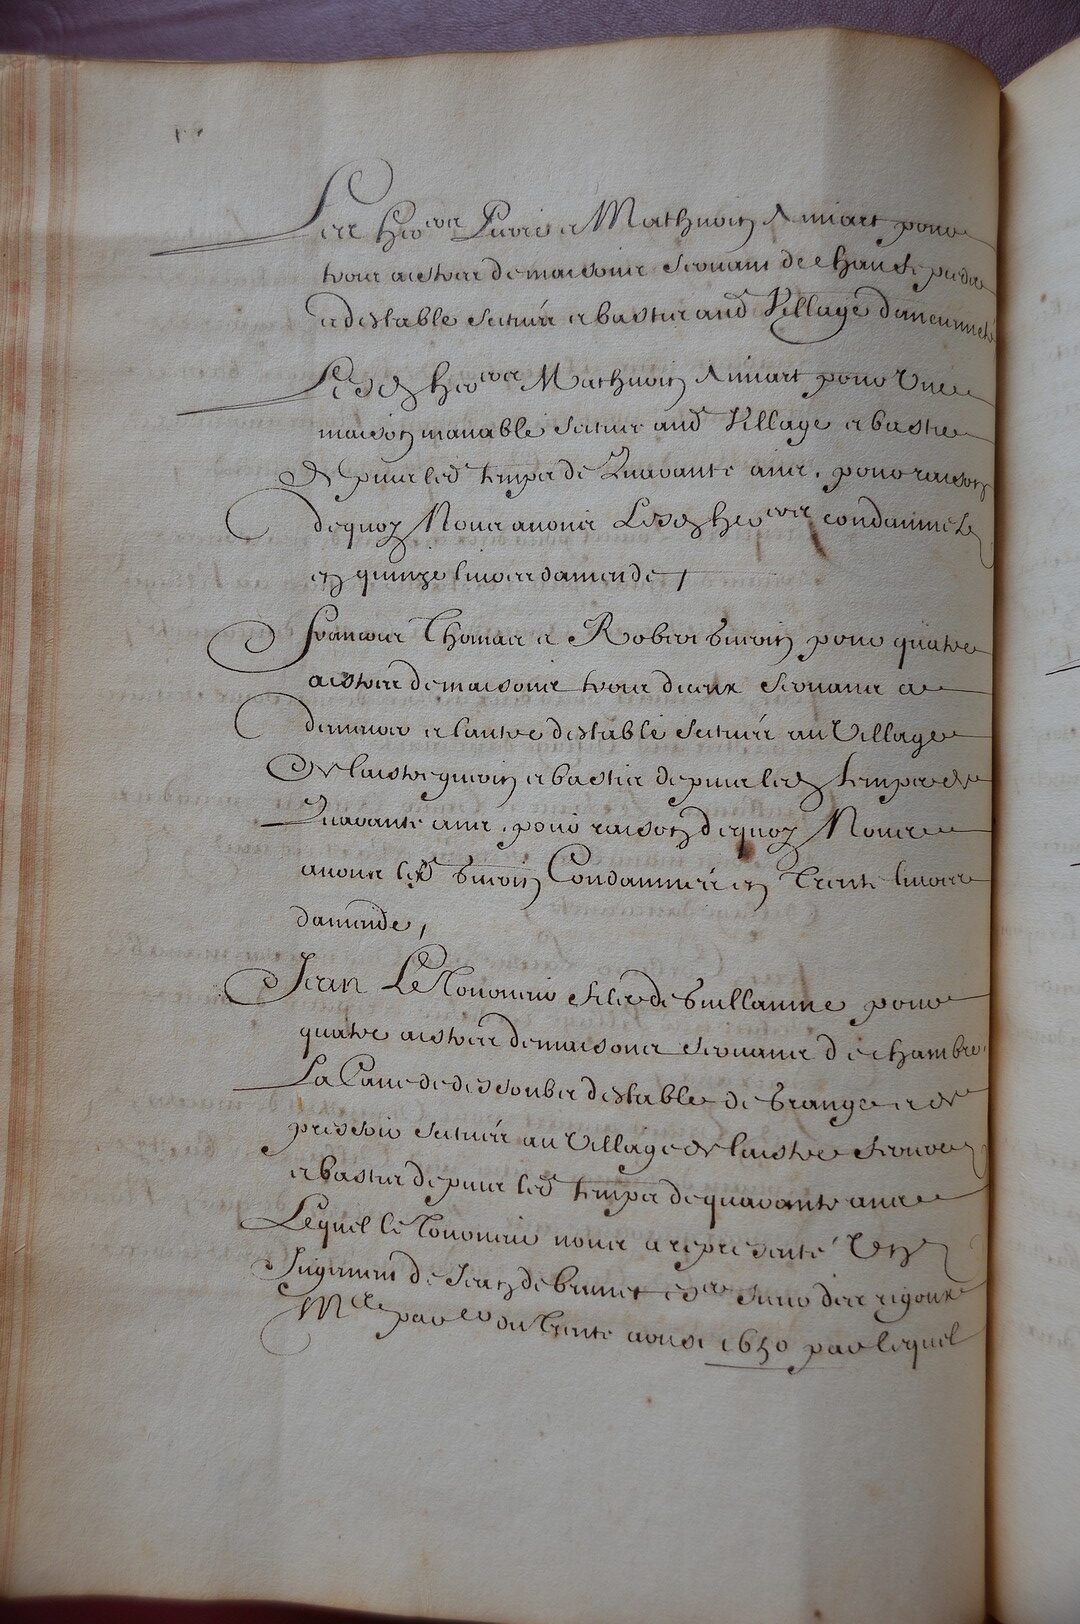 Les her^ers Pierre et Mathurin Amiart pour
trois aistres de maisons servans de chauferpied
et destable scituéz et bastis aud Village
Lesd her^ers Mathurin Amiart pour Une
maison manable scitué aud Village et bastie
depuis led temps de Quarante ans, pour raison
dequoy Nous avons Lesd her^ers condamnéz
en quinze livres damende,
francois Thomas et Robert pour quatre
aistres de maisons trois diceux servans a
demeurer et lautre destable scituéz au Village
de et bastis depuis led temps de
Quarante ans, pour raison dequoy Nous
avons lesd Condamnéz en Trente livres
damende,
Jean Le filz de Guillaume pour
quatre aistres de maisons servans de chambre
La Cave de dessoubz destable de Grange et de
pressoir scituéz au Village de
et bastis depuis led temps de quarante ans
Lequel le nous a representé Un
Jugement de Jean de es^er sieur des
M^e par eu du Trente aoust 1650 par lequel